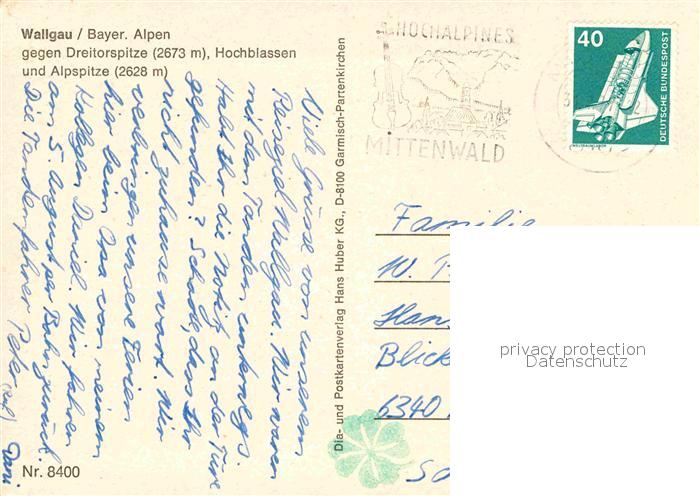 Wallgau / Bayer. Alpen
gegen Dreitorspitze (2673 m), Hochblassen
und Alpspitze (2628 m)
Viele Grüsse von unserem
Reiseziel Wallgau. Wir waren
mit dem Tandem unterwegs.
Habt Ihr die Notiz an der Türe
gefunden? Schade, dass Ihr
nicht zuhause wart. Wir
verbringen unsere Ferien
hier beim Opa von meinem
Kollegen Daniel. Wir fahren
am 5 August per Bahn zurück.
Die Tandemfahrer Peter
Dani
Nr. 8400
Dia- und Postkartenverlag Hans Huber KG., D-8100 Garmisch-Partenkirchen
HOCHALPINES
MITTENWALD
40
DEUTSCHE BUNDESPOST
WELTRAUMLABOR
Familie
W.
Blick
6340
privacy protection
Datenschutz